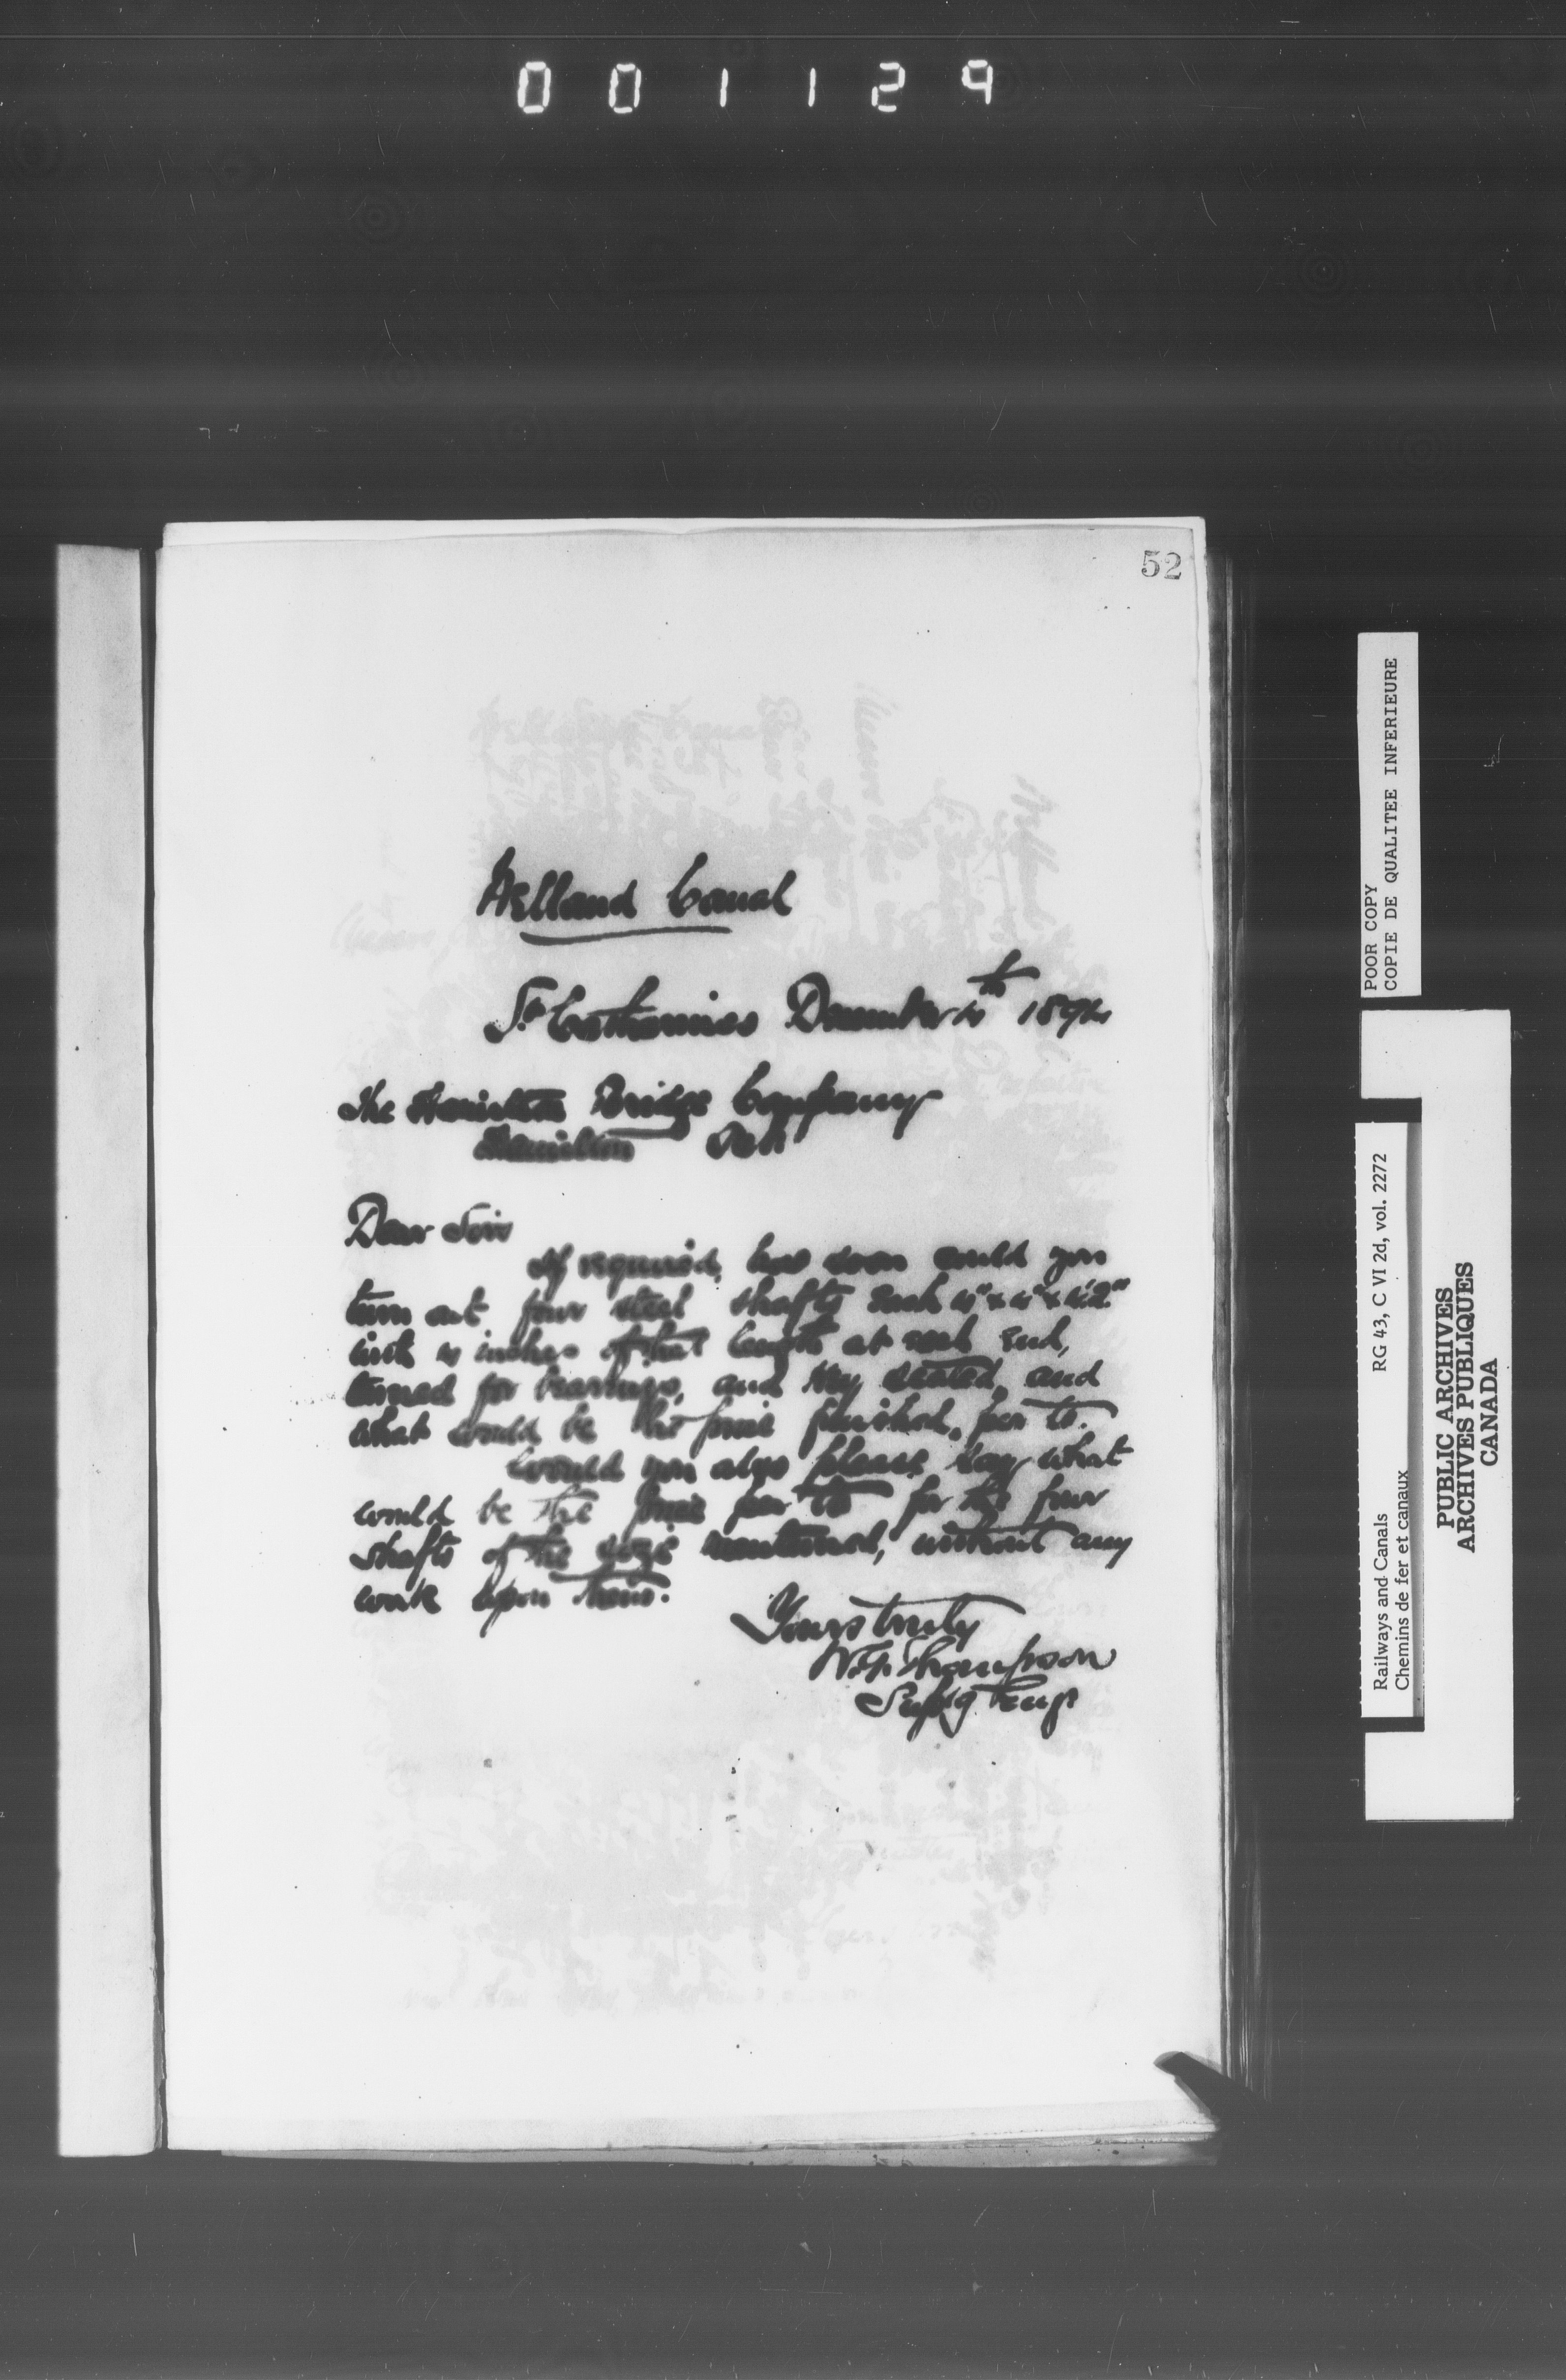 001129
52
Welland Canal
St Catharines December 4th 1894
The Hamilton Bridge Company
Hamilton Ont
Dear Sir
If required, how soon could you
turn out four steel shafts each 4" x 4" x
with 4 inches of that length at each end,
turned for bearings, and key seated, and
what would be the price finished, per lb.
Would you also please say what
would be the price per lb for the four
shafts of the size mentioned, without any
work upon them.
Yours truly
W.G. Thompson
Sup'g Engr
POOR COPY
COPIE DE QUALITEE INFERIEURE
Railways and Canals RG 43, C VI 2d, vol. 2272
Chemins de fer et canaux
PUBLIC ARCHIVES
ARCHIVES PUBLIQUES
CANADA